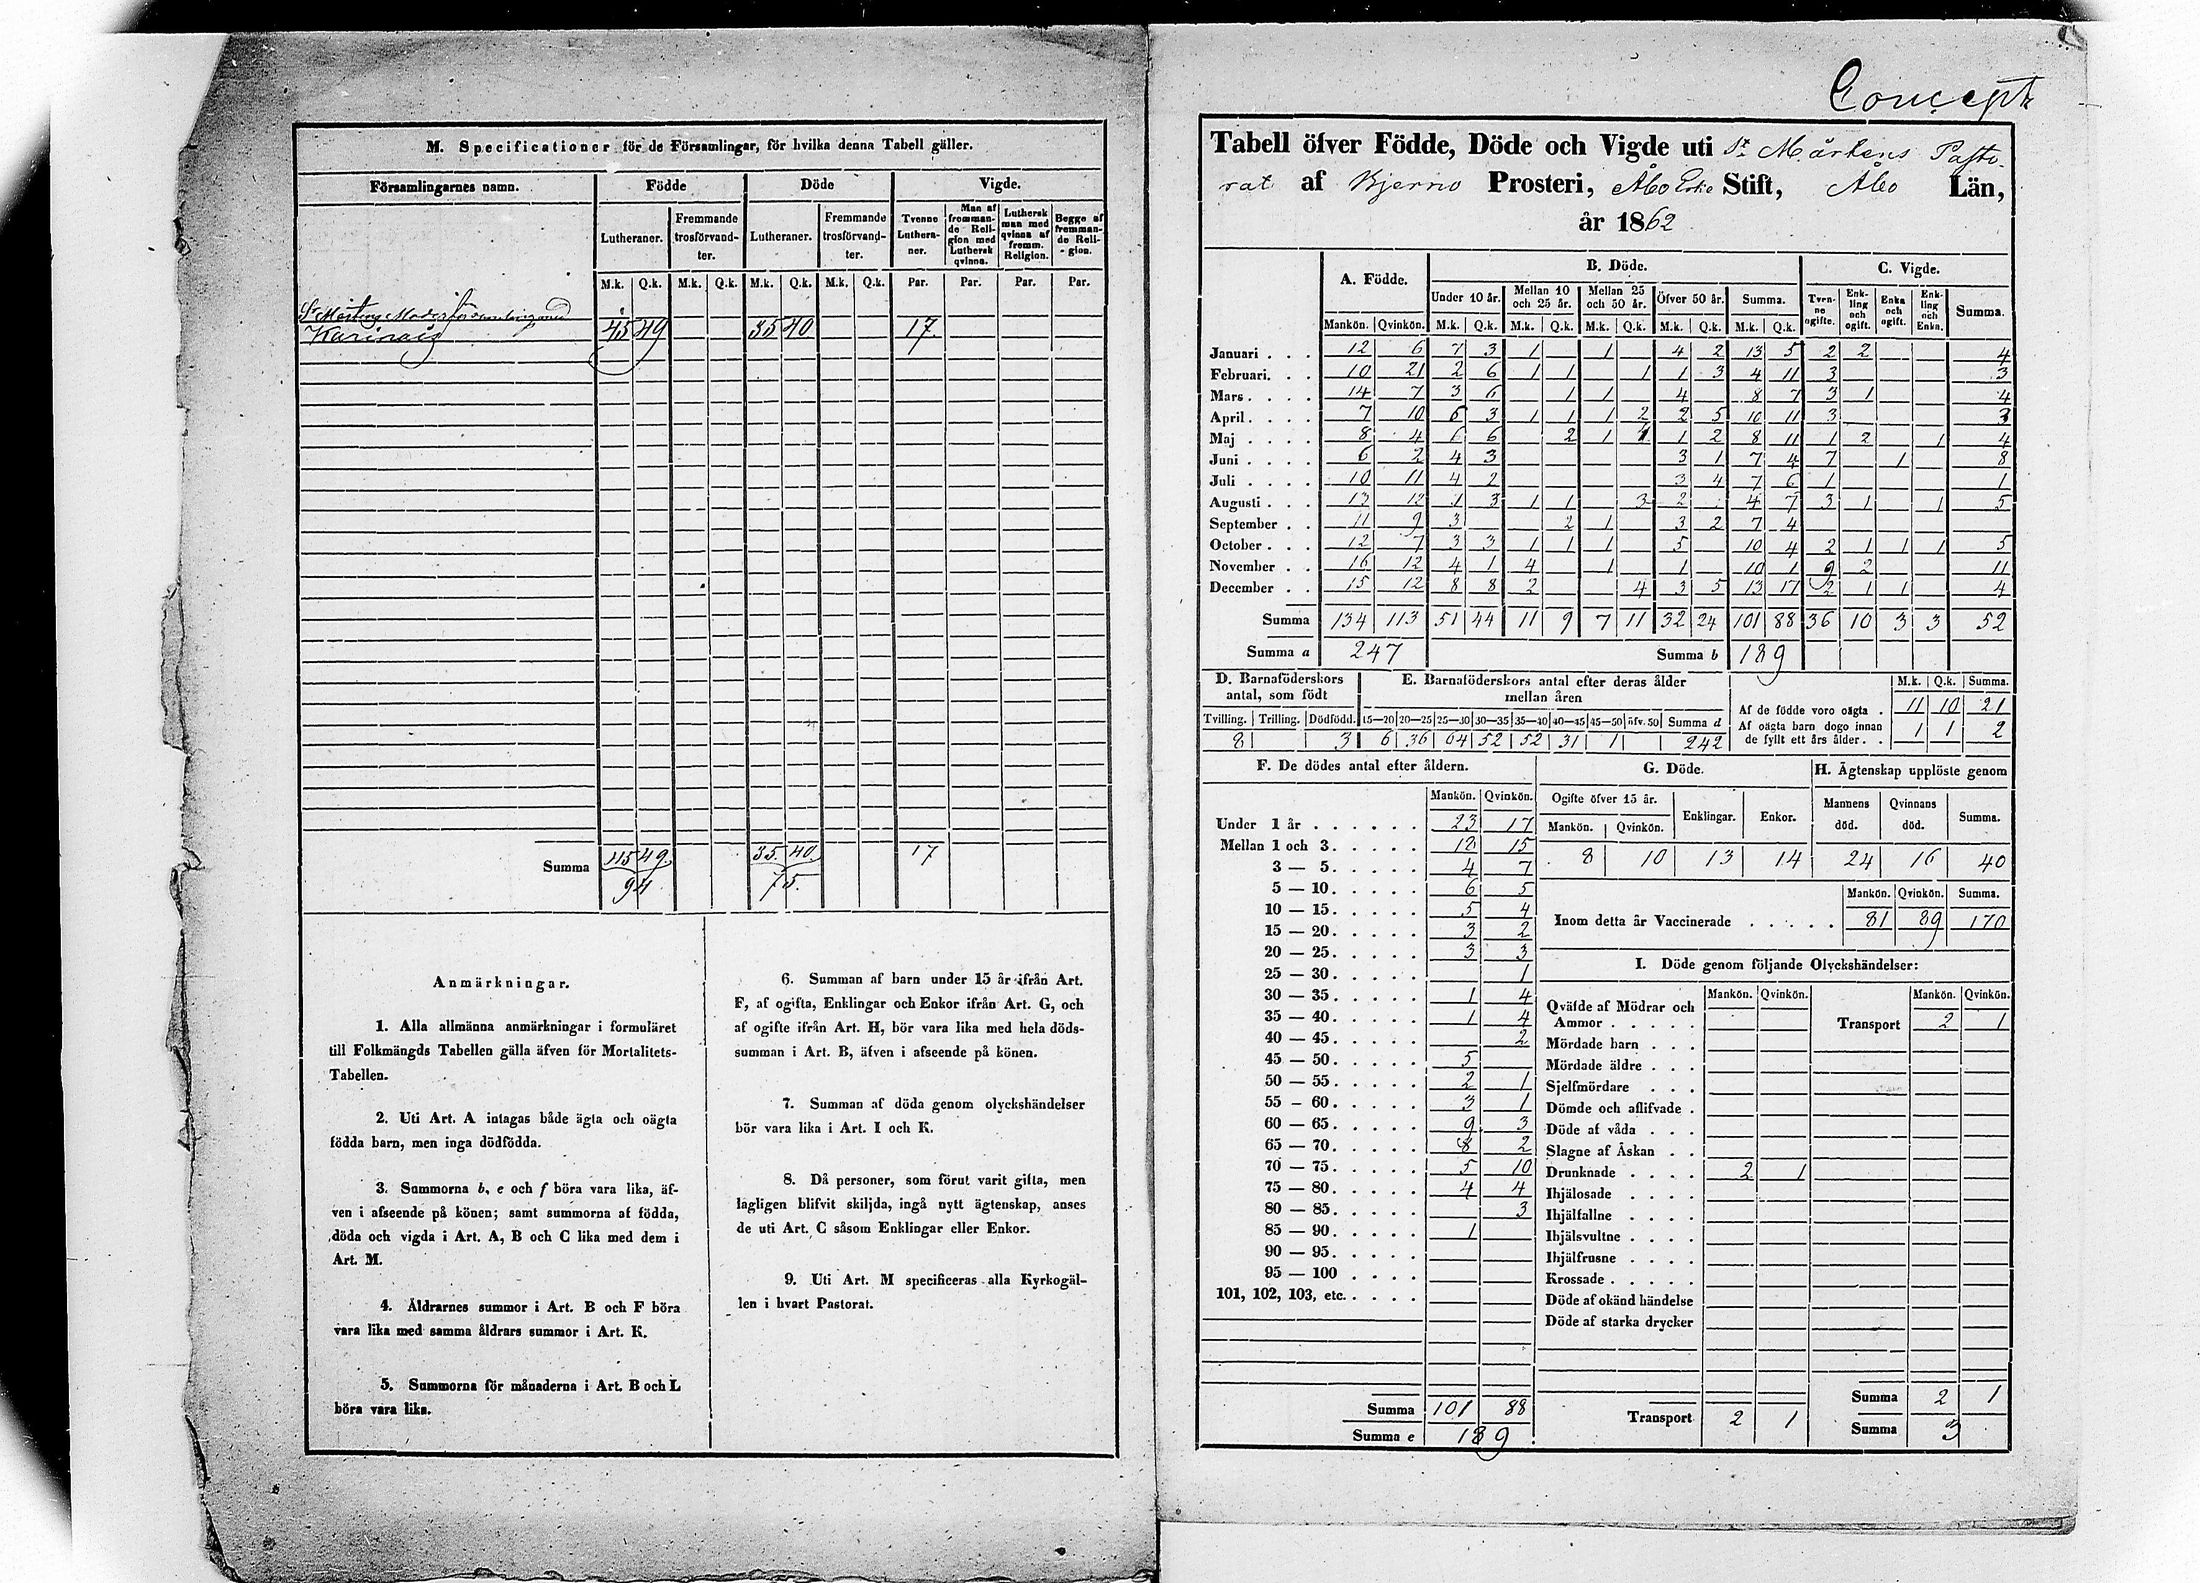 M. Specificationer för de Församlingar, för hvilka denna Tabell gäller.
Församlingarnes namn. Födde Döde Vigde.
Lutheraner. Fremmande trosförvandter. Lutheraner. Fremmande trosförvandter. Tvenne Lutheraner. Man af fremmande Religion med Luthersk qvinna. Luthersk man med qvinna af fremm. Religion. Begge af fremmande Religion.
M.k. Q.k. M.k. Q.k. M.k. Q.k. M.k. Q.k. Par. Par. Par. Par.
St Mårtens Moderförsamling med
Karinais 45 49 35 40 17.
Summa 45 49 35. 40. 17
94 75.
Anmärkningar.
1. Alla allmänna anmärkningar i formuläret
till Folkmängds Tabellen gälla äfven för Mortalitets-
Tabellen.
2. Uti Art. A intagas både ägta och oägta
födda barn, men inga dödfödda.
3. Summorna b, e och f böra vara lika, äf-
ven i afseende på könen; samt summorna af födda,
döda och vigda i Art. A, B och C lika med dem i
Art. M.
4. Åldrarnes summor i Art. B och F böra
vara lika med samma åldrars summor i Art. K.
5. Summorna för månaderna i Art. B och L
böra vara lika.
6. Summan af barn under 15 år ifrån Art.
F, af ogifta, Enklingar och Enkor ifrån Art. G, och
af ogifte ifrån Art. H, bör vara lika med hela döds-
summan i Art. B, äfven i afseende på könen.
7. Summan af döda genom olyckshändelser
bör vara lika i Art. I och K.
8. Då personer, som förut varit gifta, men
lagligen blifvit skiljda, ingå nytt ägtenskap, anses
de uti Art. C såsom Enklingar eller Enkor.
9. Uti Art. M specificeras alla Kyrkogäl-
len i hvart Pastorat.
Concept
Tabell öfver Födde, Döde och Vigde uti St Mårtens Pasto-
rat af Kjerno Prosteri, Åbo Erke Stift, Åbo Län,
år 1862
A. Födde. B. Döde. C. Vigde.
Under 10 år. Mellan 10 och 25 år. Mellan 25 och 50 år. Öfver 50 år. Summa. Tvenne ogifte. Enkling och ogift. Enka och ogift. Enkling och Enka. Summa.
Mankön. Qvinkön. M.k. Q.k. M.k. Q.k. M.k. Q.k. M.k. Q.k. M.k. Q.k.
Januari . . . 12 6 7 3 1 1 4 2 13 5 2 2 4
Februari. . . 10 21 2 6 1 1 1 1 3 4 11 3 3
Mars . . . . 14 7 3 6 1 1 4 8 7 3 1 4
April. . . . 7 10 6 3 1 1 1 2 2 5 10 11 3 3
Maj . . . . 8 4 6 6 2 1 1 1 2 8 11 1 2 1 4
Juni . . . . 6 2 4 3 3 1 7 4 7 1 8
Juli . . . . 10 11 4 2 3 4 7 6 1 1
Augusti . . . 13 12 1 3 1 1 3 2 4 7 3 1 1 5
September . . 11 9 3 2 1 3 2 7 4
October . . . 12 7 3 3 1 1 1 5 10 4 2 1 1 1 5
November . . 16 12 4 1 4 1 1 10 1 9 2 11
December . . 15 12 8 8 2 4 3 5 13 17 2 1 1 4
Summa 134 113 51 44 11 9 7 11 32 24 101 88 36 10 3 3 52
Summa a 247 Summa b 189
D. Barnaföderskors antal, som födt
Tvilling. Trilling. Dödfödd.
8 3
E. Barnaföderskors antal efter deras ålder mellan åren
15—20 20—25 25—30 30—35 35—40 40—45 45—50 öfv. 50 Summa d
6 36 64 52 52 31 1 242
M.k. Q.k. Summa.
Af de födde voro oägta . 11 10 21
Af oägta barn dogo innan
de fyllt ett års ålder. . 1 1 2
F. De dödes antal efter åldern.
Mankön. Qvinkön.
Under 1 år . . . . . . 23 17
Mellan 1 och 3. . . . . 18 15
3 — 5. . . . . 4 7
5 — 10. . . . . 6 5
10 — 15. . . . . 5 4
15 — 20. . . . . 3 2
20 — 25. . . . . 3 3
25 — 30. . . . . 1
30 — 35. . . . . 1 4
35 — 40. . . . . 1 4
40 — 45. . . . . 2
45 — 50. . . . . 5
50 — 55. . . . . 2 1
55 — 60. . . . . 3 1
60 — 65. . . . . 9 3
65 — 70. . . . . 8 2
70 — 75. . . . . 5 10
75 — 80. . . . . 4 4
80 — 85. . . . . 3
85 — 90. . . . . 1
90 — 95. . . . .
95 — 100 . . . .
101, 102, 103, etc. . . . .
Summa 101 88
Summa e 189.
G. Döde.
Ogifte öfver 15 år. Enklingar. Enkor.
Mankön. Qvinkön.
8 10 13 14
H. Ägtenskap upplöste genom
Mannens död. Qvinnans död. Summa.
24 16 40
Mankön. Qvinkön. Summa.
Inom detta år Vaccinerade . . . . . 81 89 170
I. Döde genom följande Olyckshändelser:
Mankön. Qvinkön. Mankön. Qvinkön.
Qväfde af Mödrar och
Ammor . . . . . Transport 2 1
Mördade barn . . .
Mördade äldre . . .
Sjelfmördare . . .
Dömde och aflifvade .
Döde af våda . . .
Slagne af Åskan . .
Drunknade . . . . 2 1
Ihjälosade . . . .
Ihjälfallne . . . .
Ihjälsvultne . . . .
Ihjälfrusne . . . .
Krossade . . . . .
Döde af okänd händelse
Döde af starka drycker
Summa 2 1
Transport 2 1
Summa 3